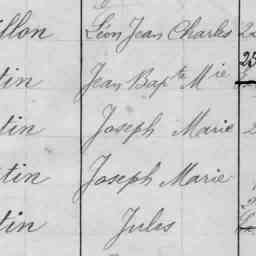 illon Léon Jean Charles 2
tin Jean Bapte Mie 25
tin Joseph Marie 2
tin Joseph Marie
tin Jules